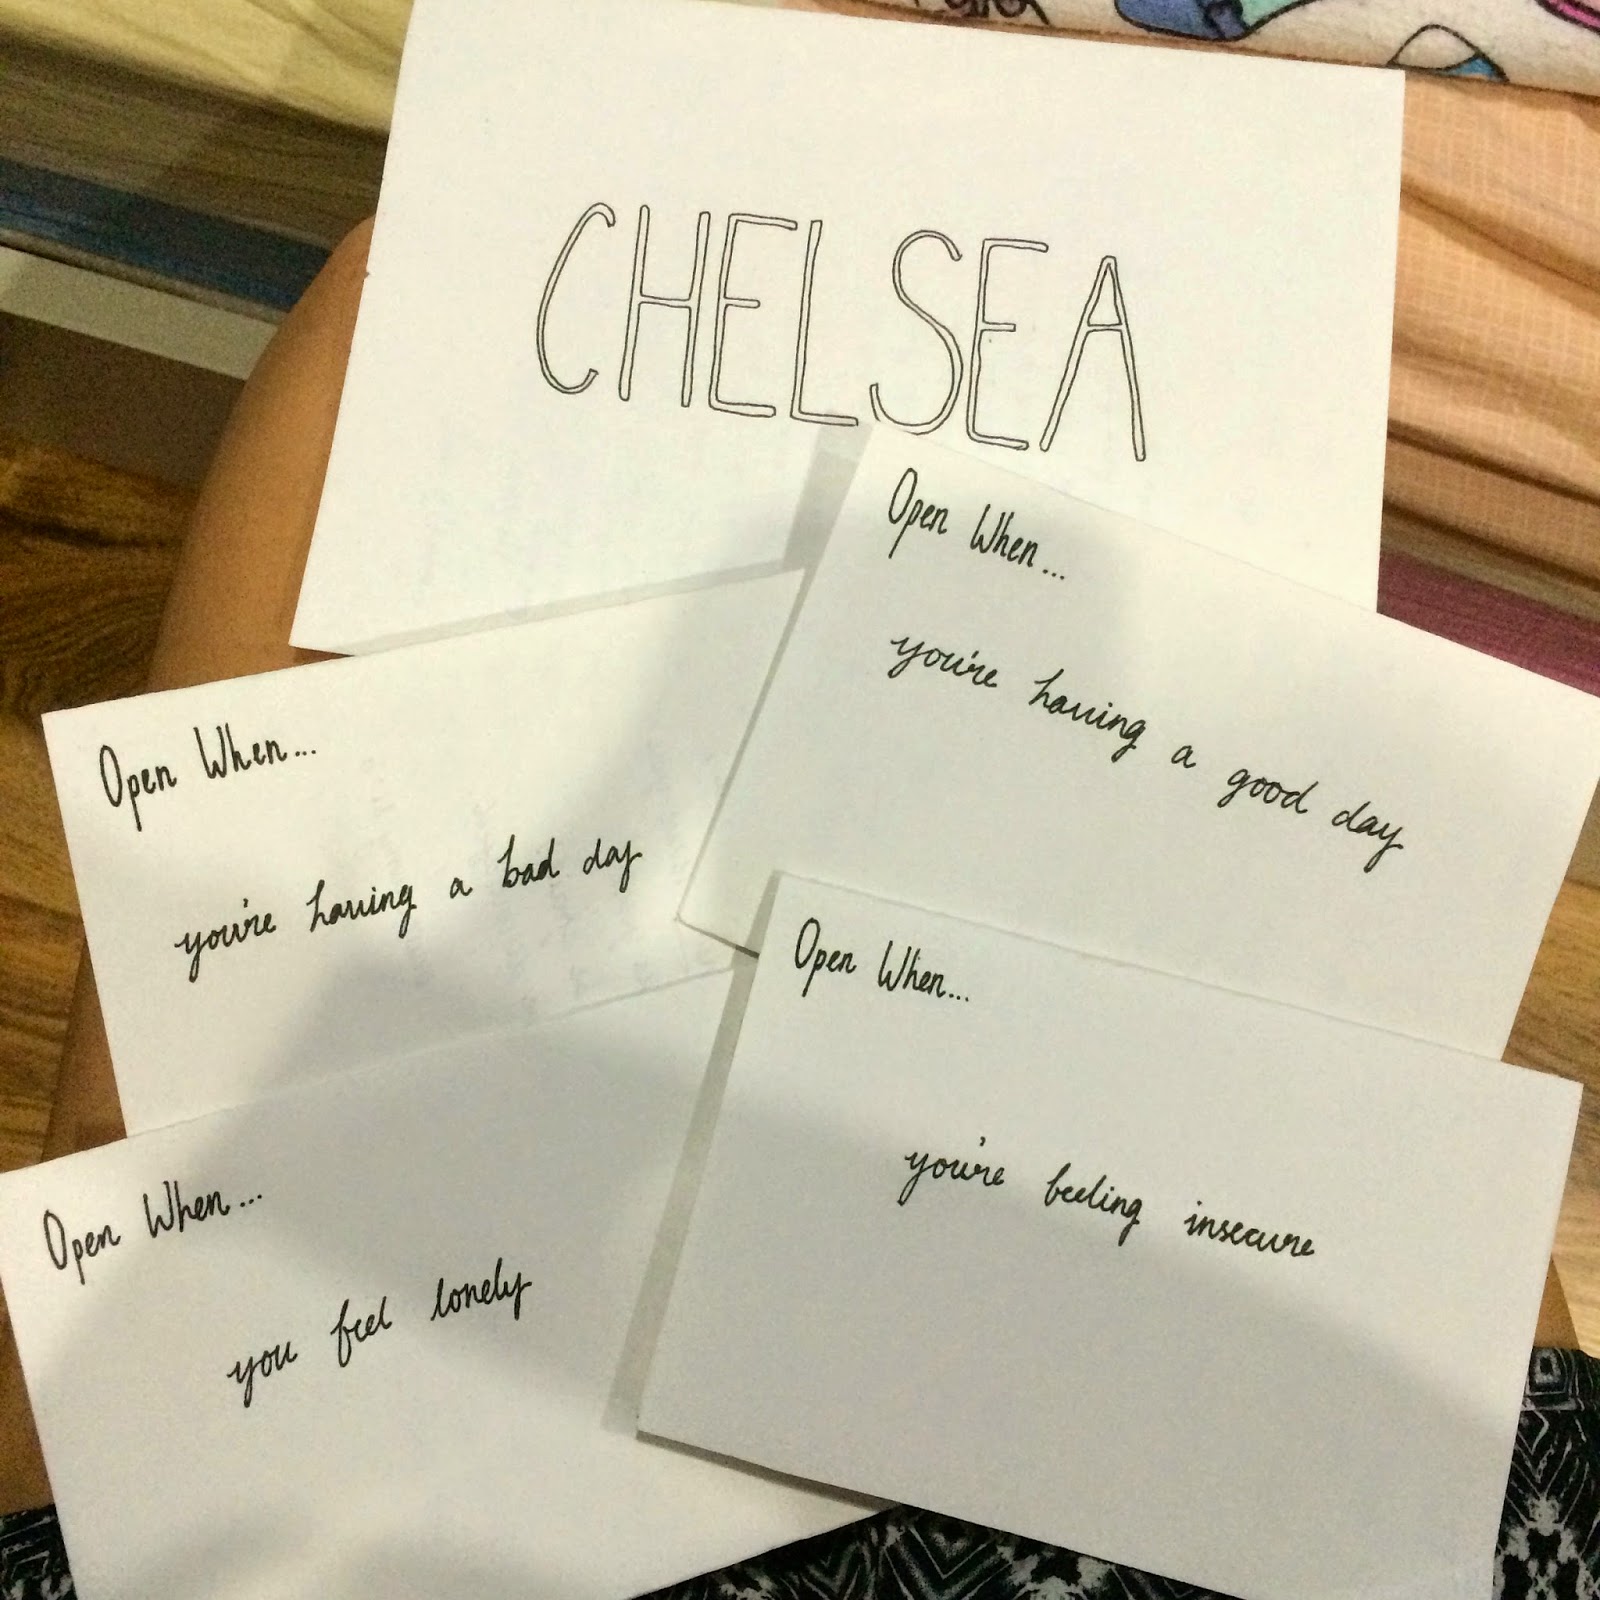 CHELSEA
Open When...
you're having a good day
Open When...
you're having a bad day
Open When...
you're feeling insecure
Open When...
you feel lonely